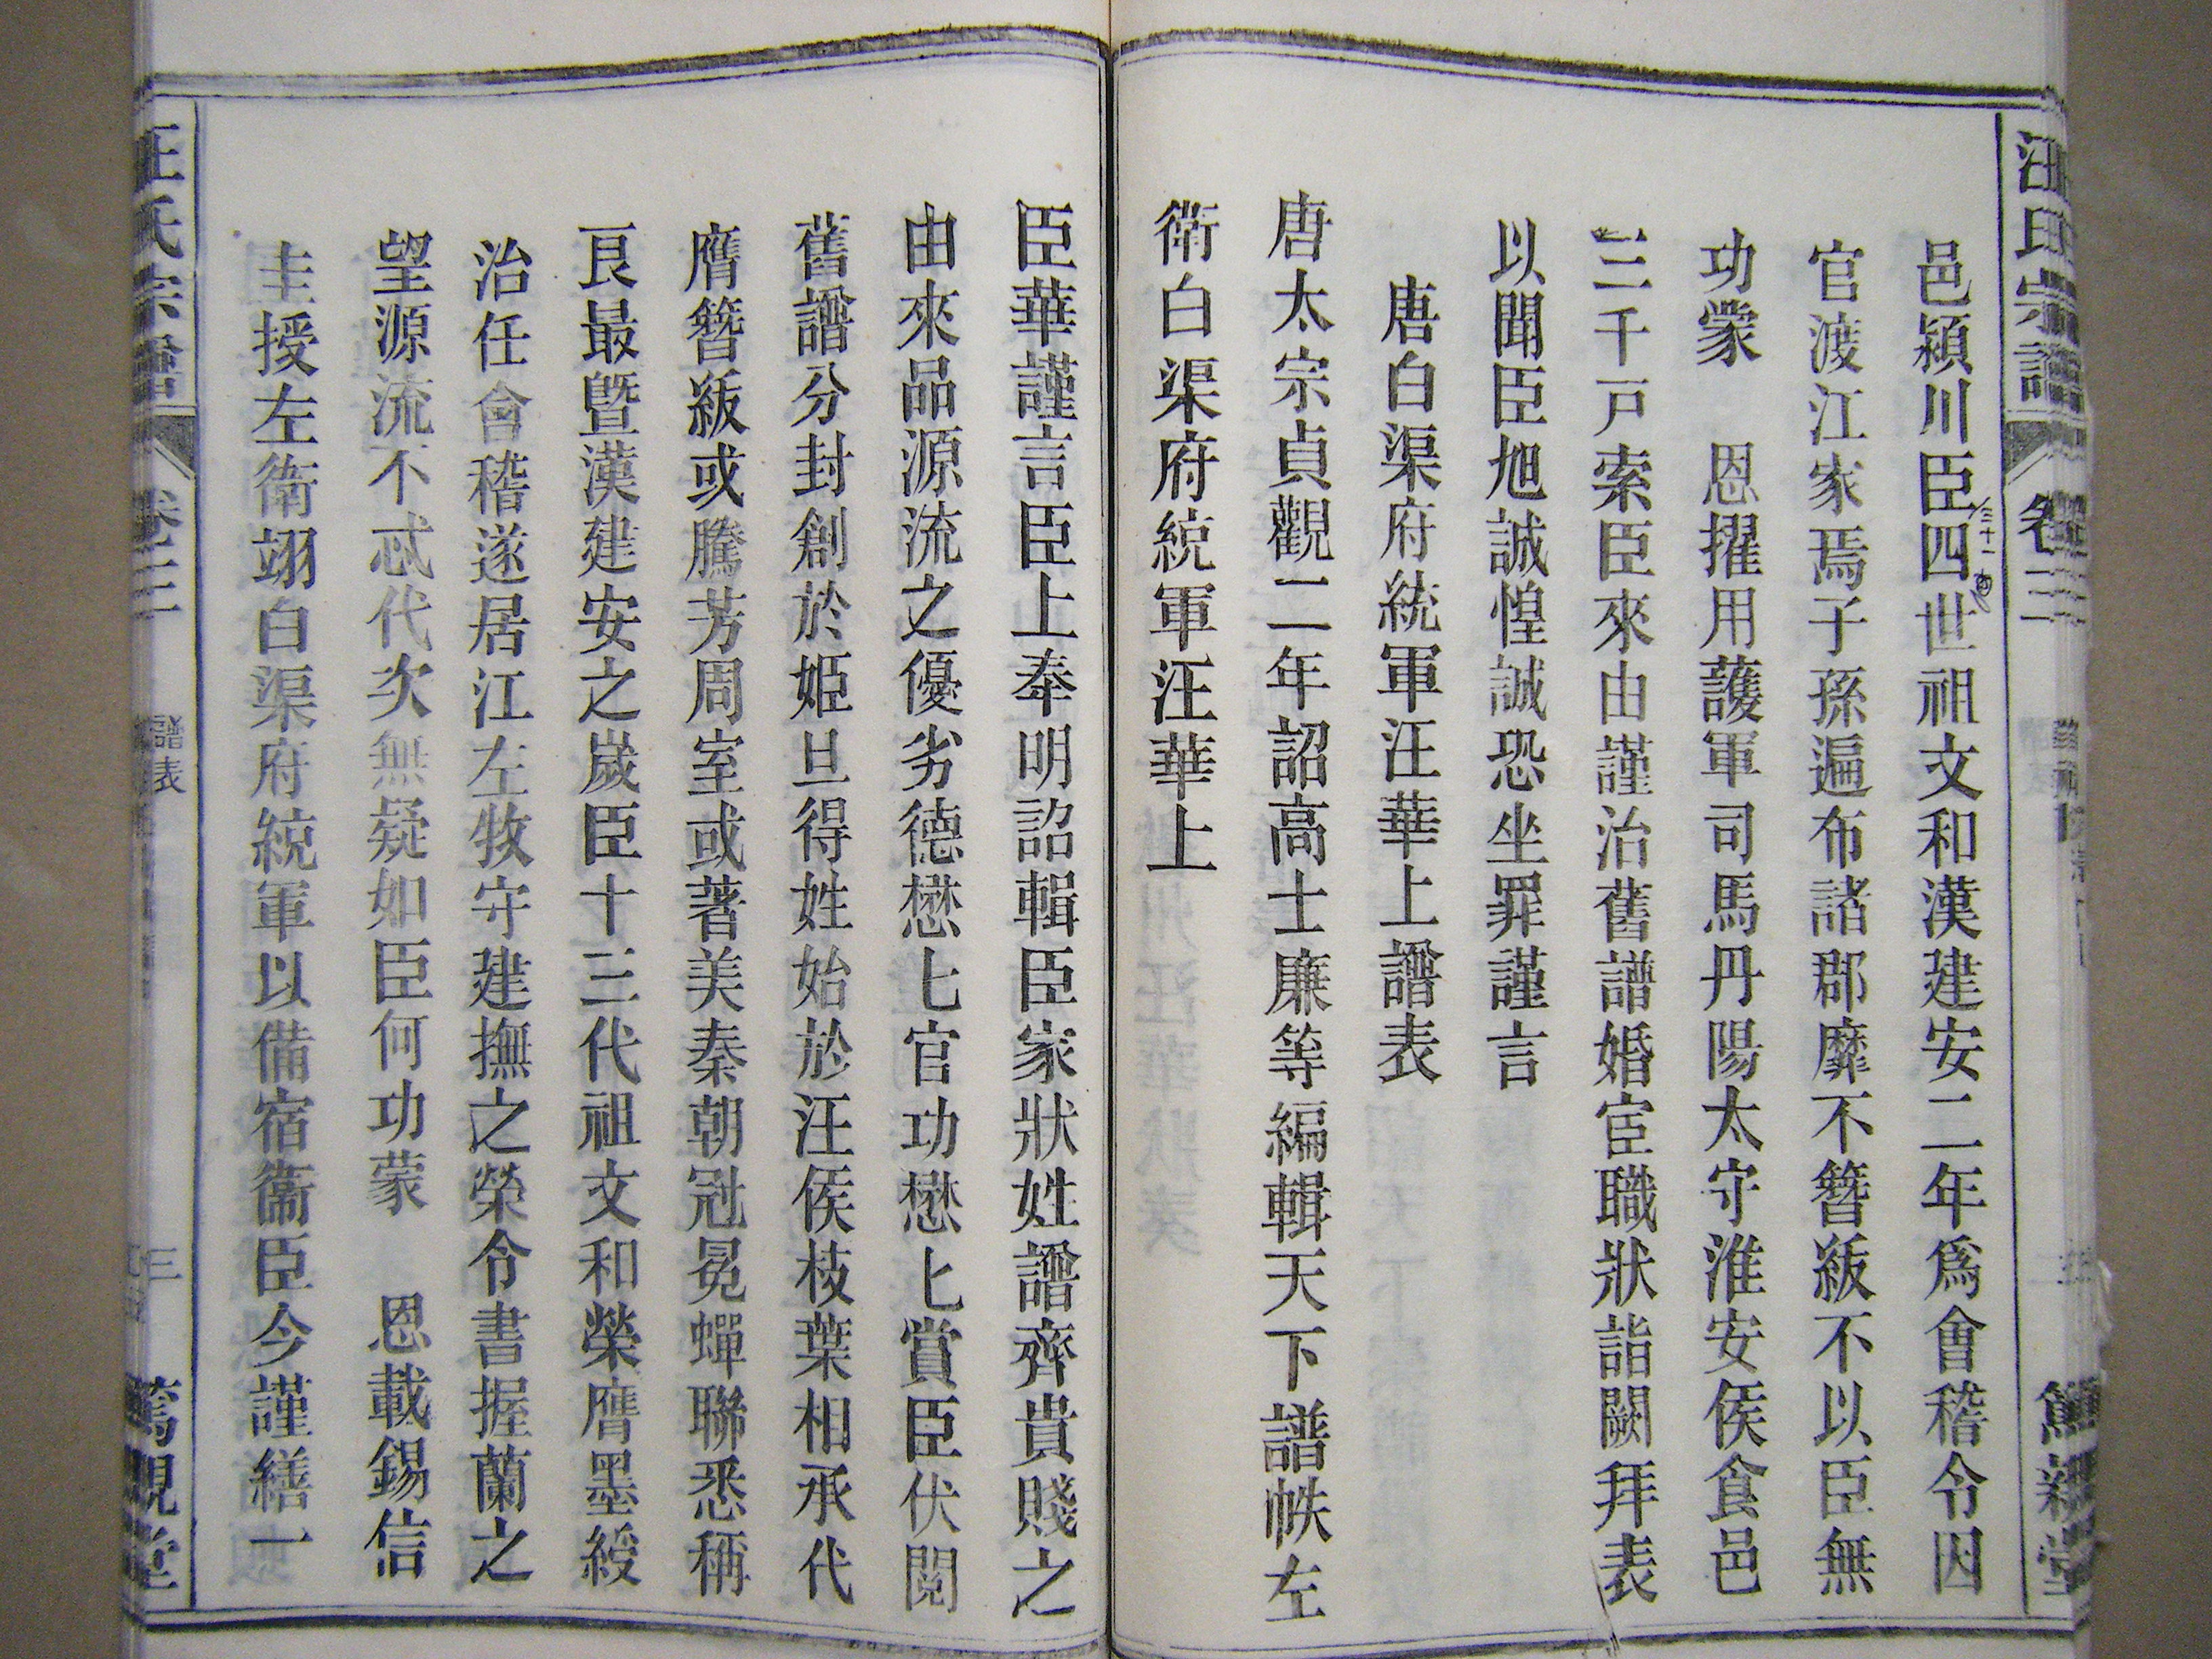 汪氏宗譜
卷三
邑潁川臣四世祖文和漢建安二年爲會稽令因
三十一
官渡江家焉子孫遍布諸郡靡不簪紱不以臣無
功蒙　恩擢用護軍司馬丹陽太守淮安侯食邑
三千戸索臣來由謹治舊譜婚宦職狀詣闕拜表
以聞臣旭誠惶誠恐坐罪謹言
唐白渠府統軍汪華上譜表
唐太宗貞觀二年詔高士廉等編輯天下譜帙左
衛白渠府統軍汪華上
臣華謹言臣上奉明詔輯臣家狀姓譜齊貴賤之
由來品源流之優劣德懋七官功懋七賞臣伏閱
舊譜分封創於姬旦得姓始於汪侯枝葉相承代
膺簪紱或騰芳周室或著美秦朝冠冕蟬聯悉稱
艮最暨漢建安之歲臣十三代祖文和榮膺墨綬
治任會稽遂居江左牧守建撫之榮令書握蘭之
望源流不忒代次無疑如臣何功蒙　恩載錫信
圭授左衛翊白渠府統軍以備宿衞臣今謹繕一
汪氏宗譜
卷三
譜表
三
篤親堂